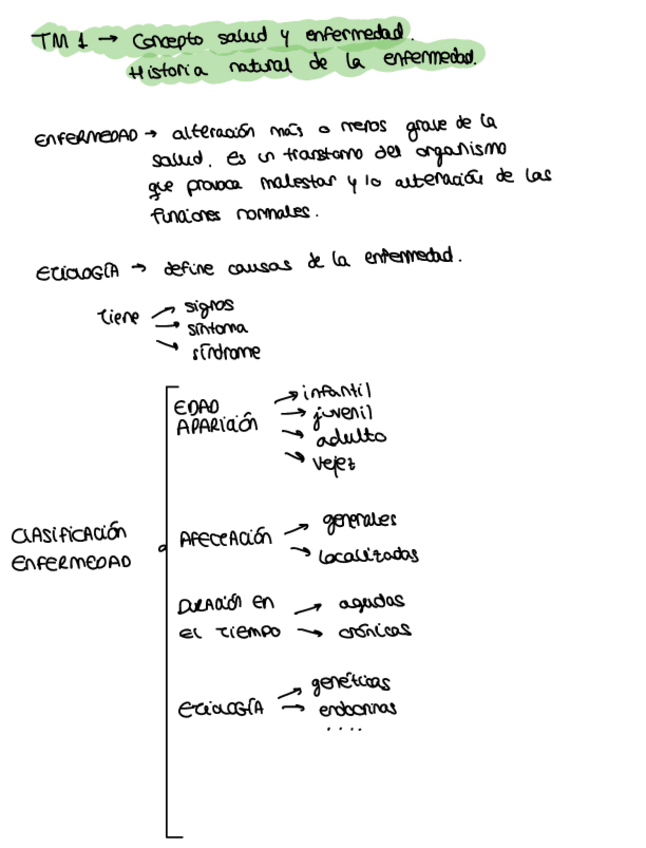 TM 1 → Concepto salud y enfermedad.
Historia natural de la enfermedad.
ENFERMEDAD → alteración más o menos grave de la
salud. Es un transtorno del organismo
que provoca malestar y la alteración de las
funciones normales.
ETIOLOGÍA → define causas de la enfermedad.
Tiene → signos
→ síntoma
→ síndrome
CLASIFICACIÓN
ENFERMEDAD
EDAD
APARICIÓN
→ infantil
→ juvenil
→ adulto
→ vejez
AFECTACIÓN → generales
→ localizadas
DURACIÓN EN → agudas
EL TIEMPO → crónicas
ETIOLOGÍA → genéticas
→ endocrinas
....